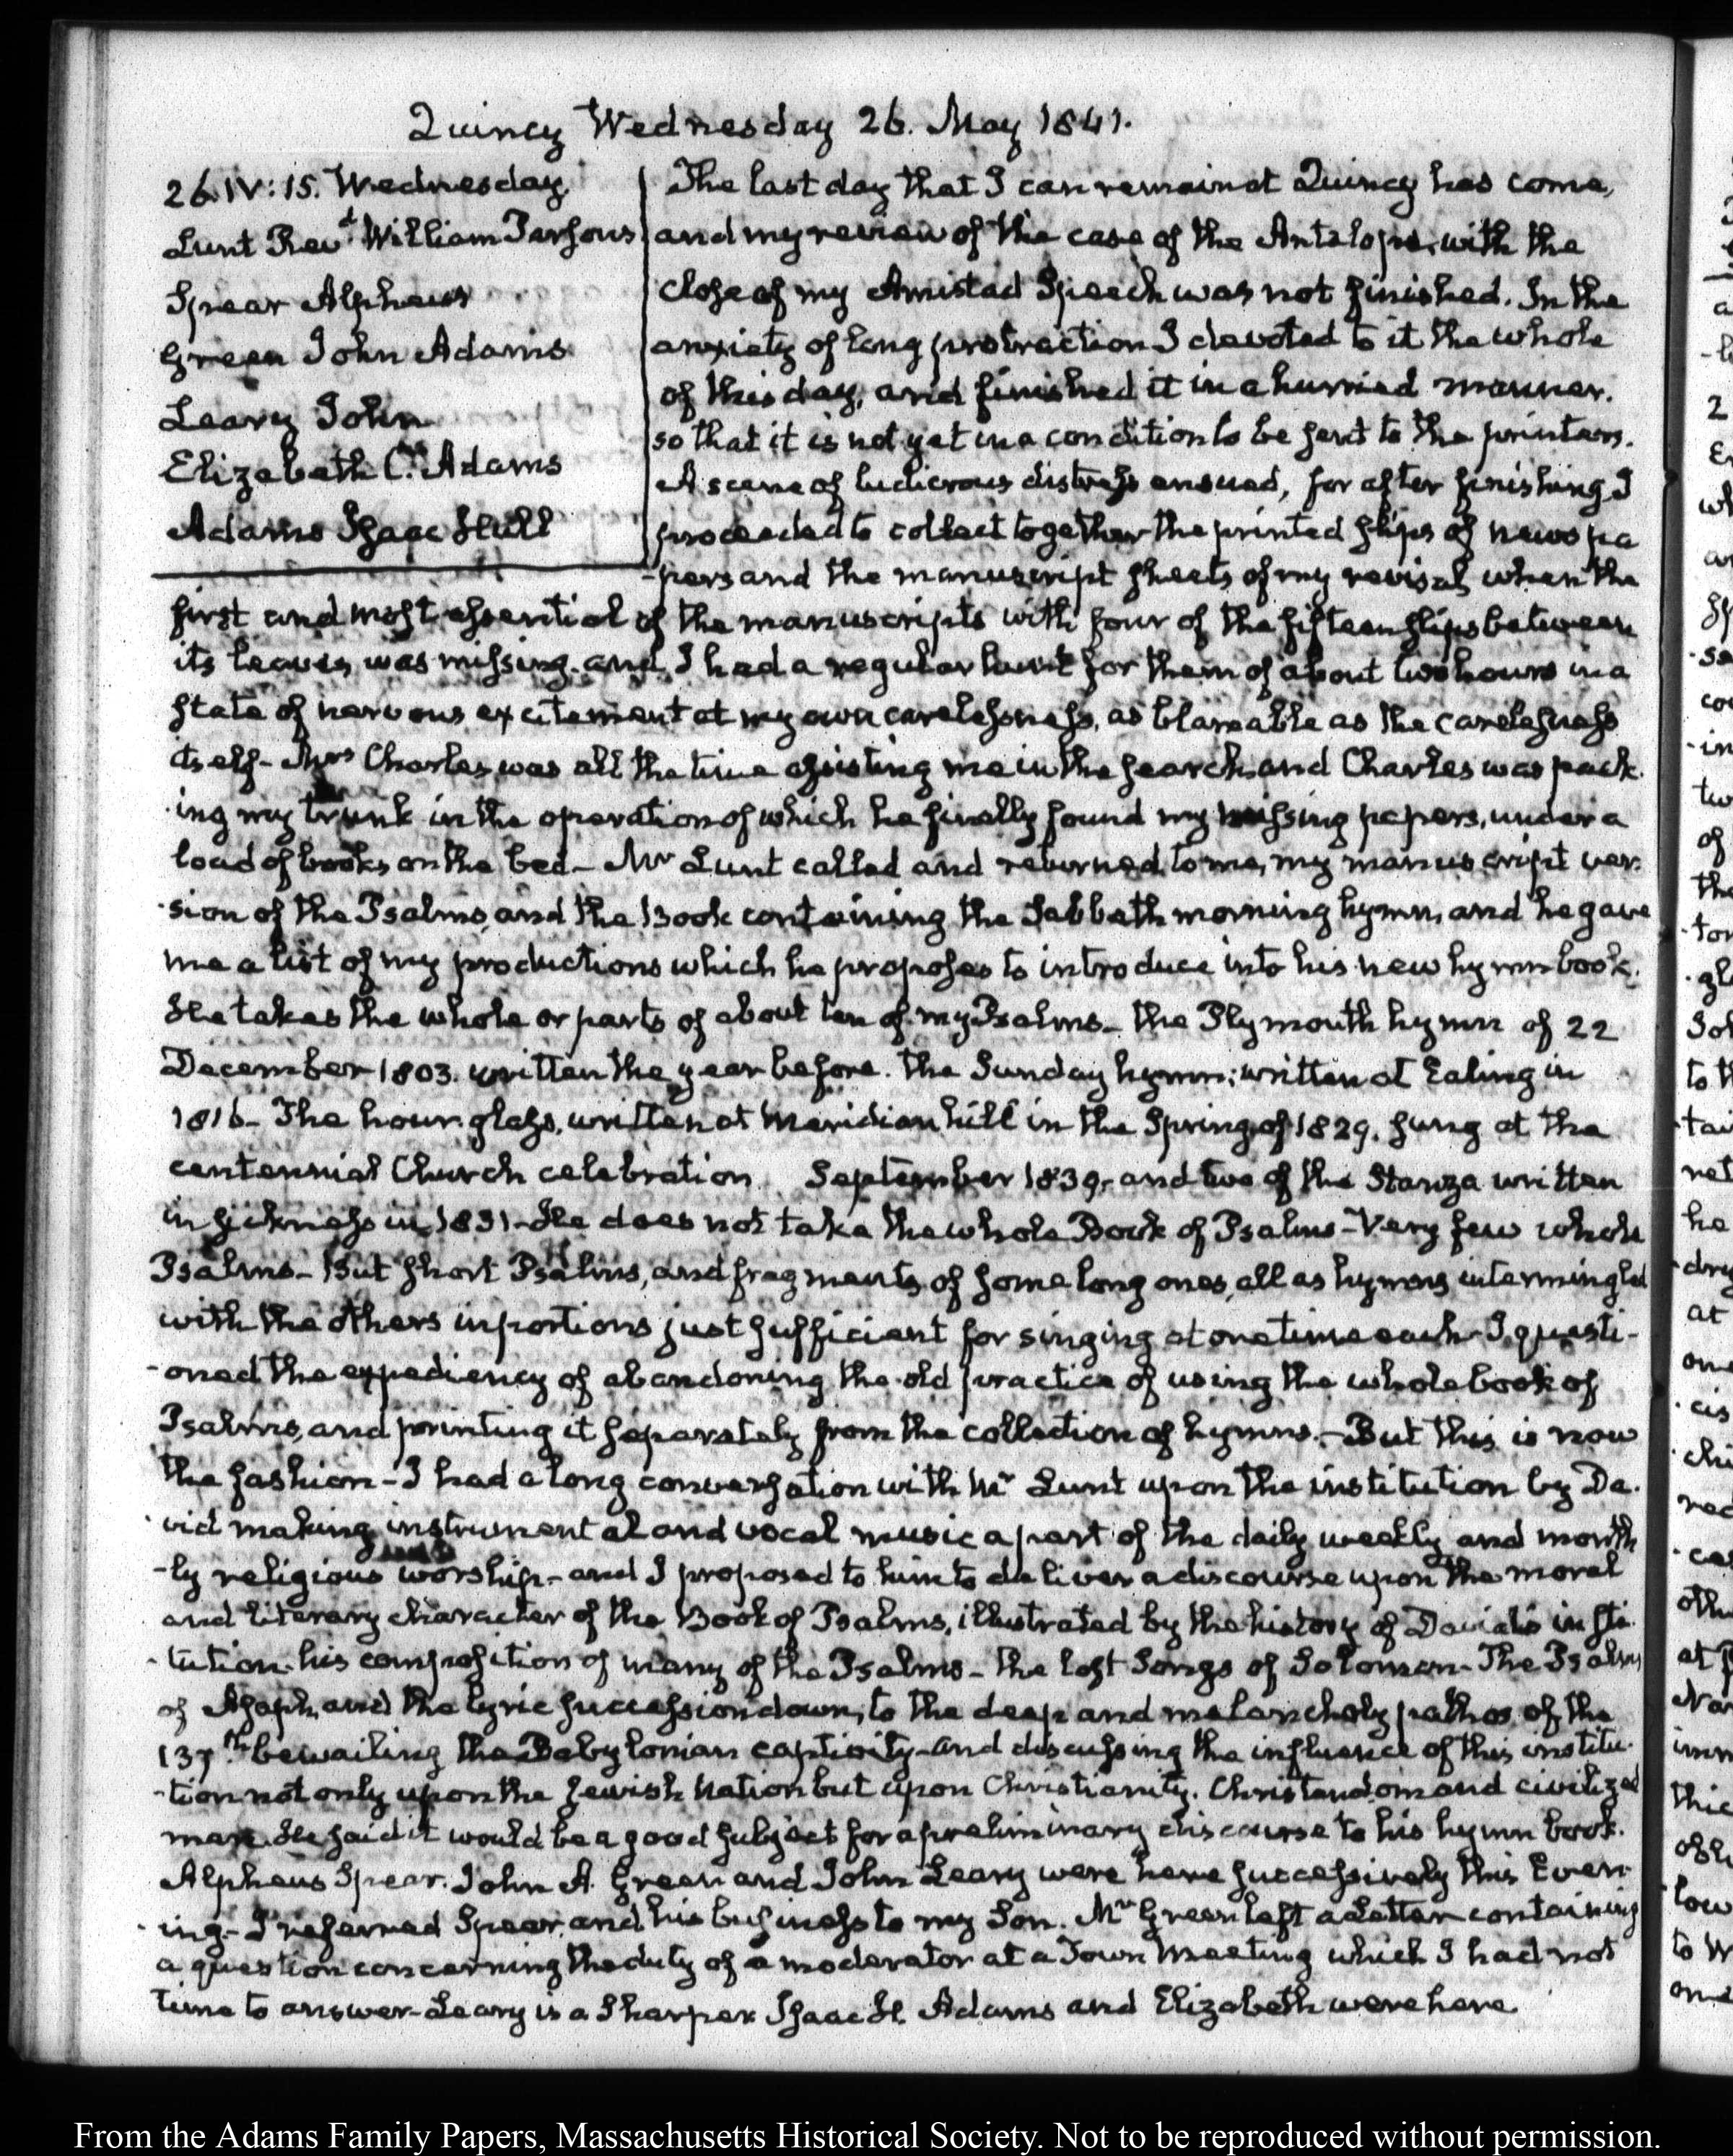 Quincy Wednesday 26. May 1841.
26. IV:15. Wednesday.
Lunt Revd William Parsons
Spear Alpheus
Green John Adams
Leary John
Elizabeth C. Adams
Adams Isaac Hull
The last day that I can remain at Quincy has come,
and my review of the case of the Antelope, with the
close of my Amistad Speech was not finished. In the
anxiety of long protraction I devoted to it the whole
of this day, and finished it in a hurried manner.
so that it is not yet in a condition to be sent to the printers.
A scene of ludicrous distress ensued, for after finishing I
proceeded to collect together the printed slips of newspa
-pers and the manuscript sheets of my revisal when the
first and most essential of the manuscripts with four of the fifteen slips between
its leaves, was missing. and I had a regular hunt for them of about two hours in a
state of nervous excitement at my own carelessness, as blameable as the carelessness
itself- Mrs Charles was all the time assisting me in the search, and Charles was pack
-ing my trunk in the operation of which he finally found my missing papers, under a
load of books on the bed- Mr Lunt called and returned to me, my manuscript ver-
-sion of the Psalms, and the Book containing the Sabbath morning hymn, and he gave
me a list of my productions which he proposes to introduce into his new hymn book.
He takes the whole or parts of about ten of my Psalms- the Plymouth hymn of 22
December 1803. written the year before. the Sunday hymn; written at Ealing in
1816- The hour glass, written at Meridian hill in the Spring of 1829. sung at the
centennial Church celebration September 1839, and two of the Stanza written
in sickness in 1831- He does not take the whole Book of Psalms- Very few whole
Psalms- But short Psalms, and fragments of some long ones, all as hymns intermingled
with the others in portions just sufficient for singing at one time each- I questi-
-oned the expediency of abandoning the old practice of using the whole book of
Psalms, and printing it separately from the collection of hymns.- But this is now
the fashion- I had a long conversation with Mr Lunt upon the institution by Da-
-vid making instrumental and vocal music a part of the daily weekly and month
-ly religious worship- and I proposed to him to deliver a discourse upon the moral
and literary character of the Book of Psalms, illustrated by the history of David's insti-
-tution. his composition of many of the Psalms- the lost Songs of Solomon- The Psalms
of Asaph, and the lyric succession down, to the deep and melancholy pathos of the
137th bewailing the Babylonian captivity- and discussing the influence of this institu-
-tion not only upon the Jewish Nation but upon Christianity. Christendom and civilized
man. He said it would be a good subject for a preliminary discourse to his hymn book.
Alpheus Spear. John A. Green and John Leary were here successively this Even-
-ing- I referred Spear, and his business to my Son. Mr Green left a Letter containing
a question concerning the duty of a moderator at a Town Meeting which I had not
time to answer- Leary is a Sharper Isaac H. Adams and Elizabeth were here
From the Adams Family Papers, Massachusetts Historical Society. Not to be reproduced without permission.